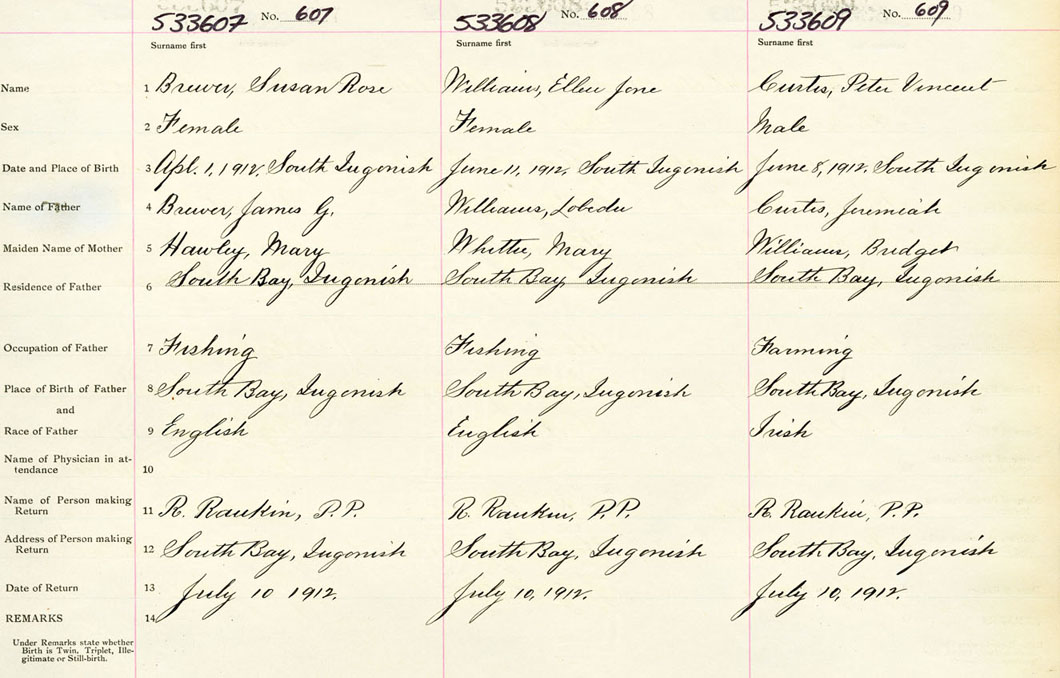 533607 No. 607 533608 No. 608 533609 No. 609
Surname first Surname first Surname first
Name 1 Brewer, Susan Rose Williams, Ellen Jane Curtis, Peter Vincent
Sex 2 Female Female Male
Date and Place of Birth 3 Apl. 1, 1912. South Ingonish June 11, 1912. South Ingonish June 8, 1912. South Ingonish
Name of Father 4 Brewer, James G. Williams, Curtis, Jeremiah
Maiden Name of Mother 5 Hawley, Mary Mary Williams, Bridget
Residence of Father 6 South Bay, Ingonish South Bay, Ingonish South Bay, Ingonish
Occupation of Father 7 Fishing Fishing Farming
Place of Birth of Father 8 South Bay, Ingonish South Bay, Ingonish South Bay, Ingonish
and
Race of Father 9 English English Irish
Name of Physician in at-
tendance 10
Name of Person making
Return 11 R. Rankin, P.P. R. Rankin, P.P. R. Rankin, P.P.
Address of Person making
Return 12 South Bay, Ingonish South Bay, Ingonish South Bay, Ingonish
Date of Return 13 July 10 1912. July 10, 1912. July 10, 1912.
REMARKS 14
Under Remarks state whether
Birth is Twin, Triplet, Ille-
gitimate or Still-birth.